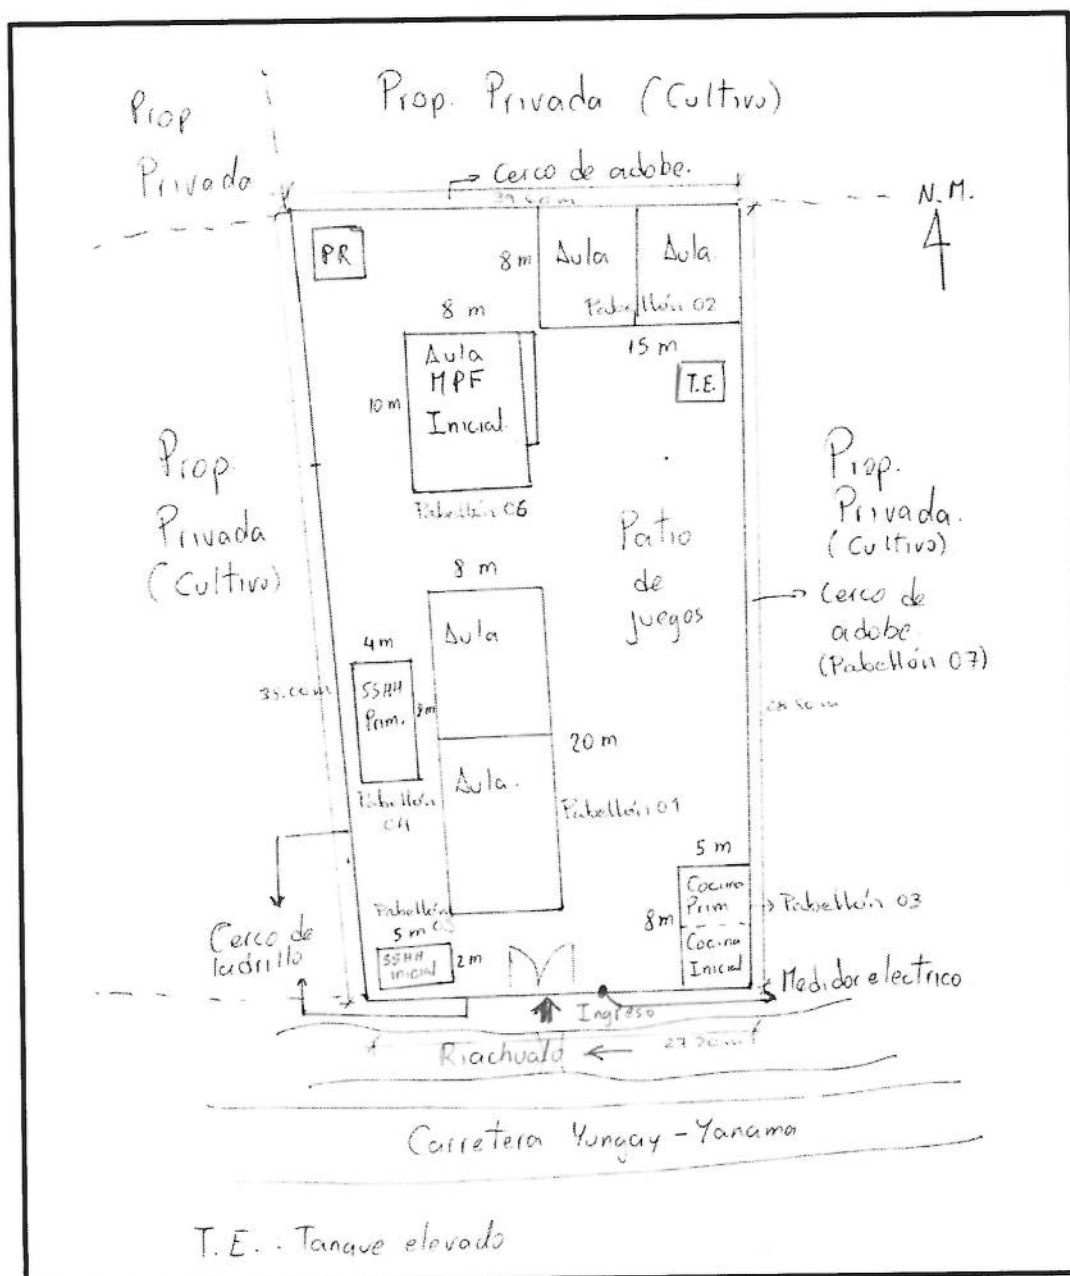 Prop. Privada (Cultivo)
Prop
Privada
Cerco de adobe.
39.40 m
N.M.
PR
8 m
Aula
Aula
Pabellón 02
15 m
8 m
Aula
MPF
Inicial
10 m
T.E.
Pabellón 06
Prop.
Privada
(Cultivo)
Prop.
Privada.
(Cultivo)
Patio
de
juegos
Cerco de
adobe
(Pabellón 07)
8 m
Aula
4 m
SSHH
Prim.
8m
35.00 m
20 m
Aula.
Pabellón
04
Pabellón 01
5 m
Cocina
Prim
8m
Cocina
Inicial
Pabellón 03
Pabellón
5 m
SSHH
inicial
2 m
Cerco de
ladrillo
Medidor electrico
Ingreso
Riachuelo
Carretera Yungay - Yanama
T.E. : Tanque elevado